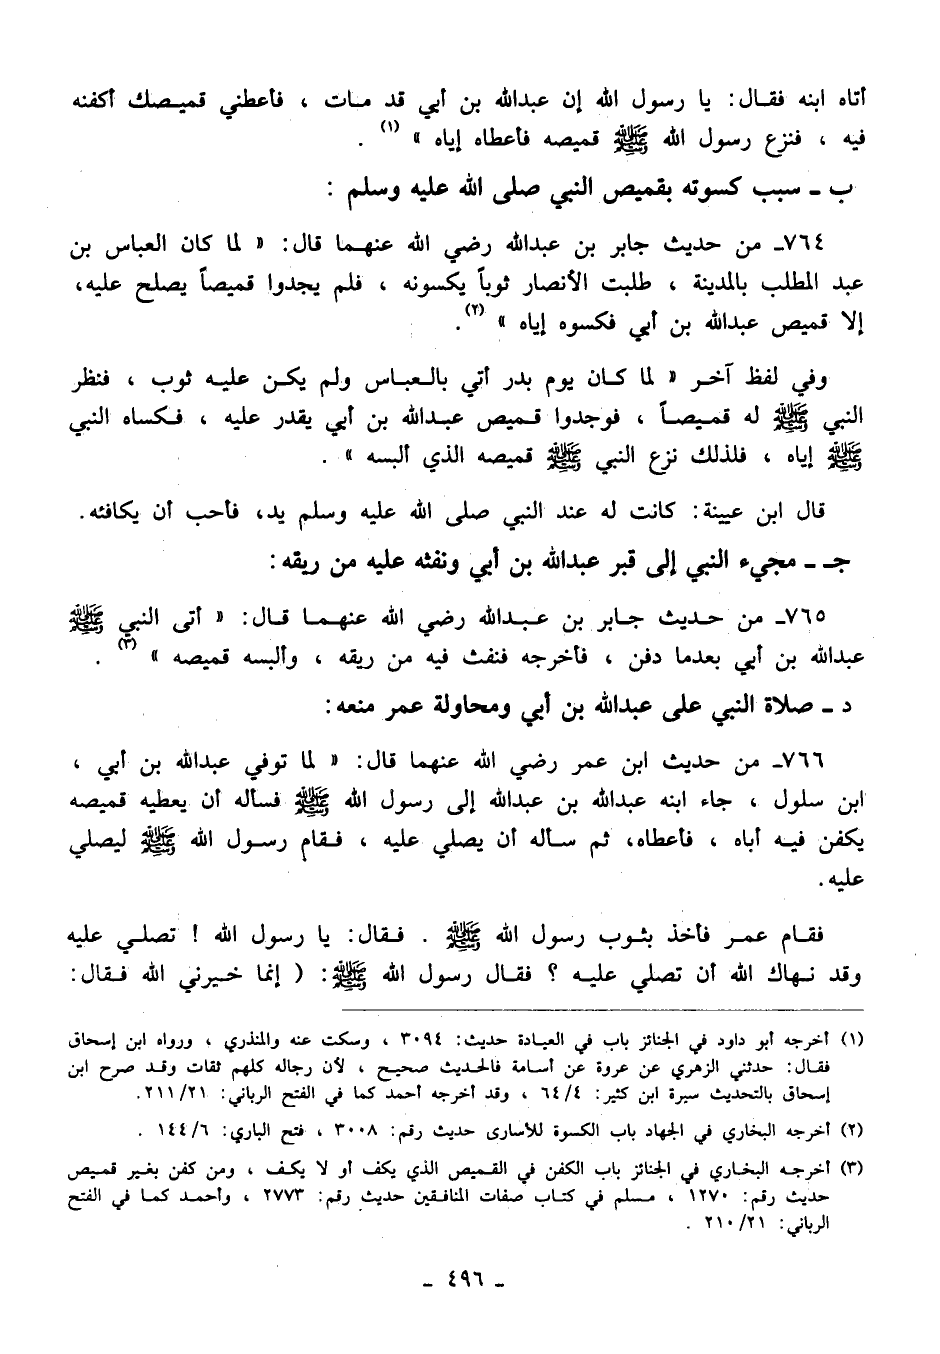 أتاه ابنه فقال: يا رسول الله إن عبدالله بن أبي قد مات ، فأعطني قميصك أكفنه
فيه ، فنزع رسول الله ﷺ قميصه فأعطاه إياه » (١) .
ب ـ سبب كسوته بقميص النبي صلى الله عليه وسلم :
٧٦٤ـ من حديث جابر بن عبدالله رضي الله عنهما قال: « لما كان العباس بن
عبد المطلب بالمدينة ، طلبت الأنصار ثوباً يكسونه ، فلم يجدوا قميصاً يصلح عليه،
إلا قميص عبدالله بن أبي فكسوه إياه » (٢).
وفي لفظ آخر « لما كان يوم بدر أتي بالعباس ولم يكن عليه ثوب ، فنظر
النبي ﷺ له قميصاً ، فوجدوا قميص عبدالله بن أبي يقدر عليه ، فكساه النبي
ﷺ إياه ، فلذلك نزع النبي ﷺ قميصه الذي ألبسه » .
قال ابن عيينة: كانت له عند النبي صلى الله عليه وسلم يد، فأحب أن يكافئه.
جـ ـ مجيء النبي إلى قبر عبدالله بن أبي ونفثه عليه من ريقه:
٧٦٥ـ من حديث جابر بن عبدالله رضي الله عنهما قال: « أتى النبي ﷺ
عبدالله بن أبي بعدما دفن ، فأخرجه فنفث فيه من ريقه ، وألبسه قميصه » (٣) .
د ـ صلاة النبي على عبدالله بن أبي ومحاولة عمر منعه:
٧٦٦ـ من حديث ابن عمر رضي الله عنهما قال: « لما توفي عبدالله بن أبي ،
ابن سلول ، جاء ابنه عبدالله بن عبدالله إلى رسول الله ﷺ فسأله أن يعطيه قميصه
يكفن فيه أباه ، فأعطاه، ثم سأله أن يصلي عليه ، فقام رسول الله ﷺ ليصلي
عليه.
فقام عمر فأخذ بثوب رسول الله ﷺ . فقال: يا رسول الله ! تصلي عليه
وقد نهاك الله أن تصلي عليه ؟ فقال رسول الله ﷺ: ( إنما خيرني الله فقال:
(١) أخرجه أبو داود في الجنائز باب في العيادة حديث: ٣٠٩٤ ، وسكت عنه والمنذري ، ورواه ابن إسحاق
فقال: حدثني الزهري عن عروة عن أسامة فالحديث صحيح ، لأن رجاله كلهم ثقات وقد صرح ابن
إسحاق بالتحديث سيرة ابن كثير: ٦٤/٤ ، وقد أخرجه أحمد كما في الفتح الرباني: ٢١١/٢١.
(٢) أخرجه البخاري في الجهاد باب الكسوة للأسارى حديث رقم: ٣٠٠٨ ، فتح الباري: ١٤٤/٦ .
(٣) أخرجه البخاري في الجنائز باب الكفن في القميص الذي يكف أو لا يكف ، ومن كفن بغير قميص
حديث رقم: ١٢٧٠ ، مسلم في كتاب صفات المنافقين حديث رقم: ٢٧٧٣ ، وأحمد كما في الفتح
الرباني: ٢١٠/٢١ .
ـ ٤٩٦ ـ